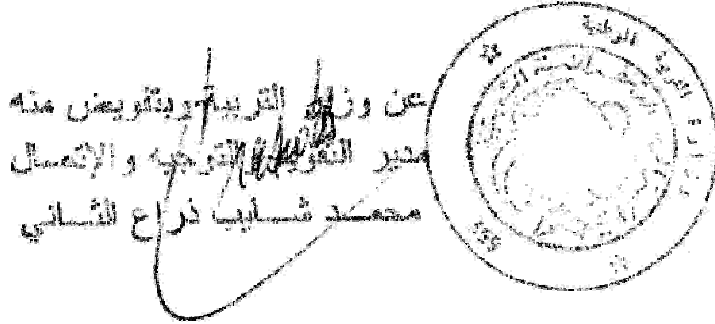 عن وزير التربية وبتفويض منه
مدير التقويم والتوجيه والإتصال
محمد شايب ذراع الثاني
وزارة التربية الوطنية